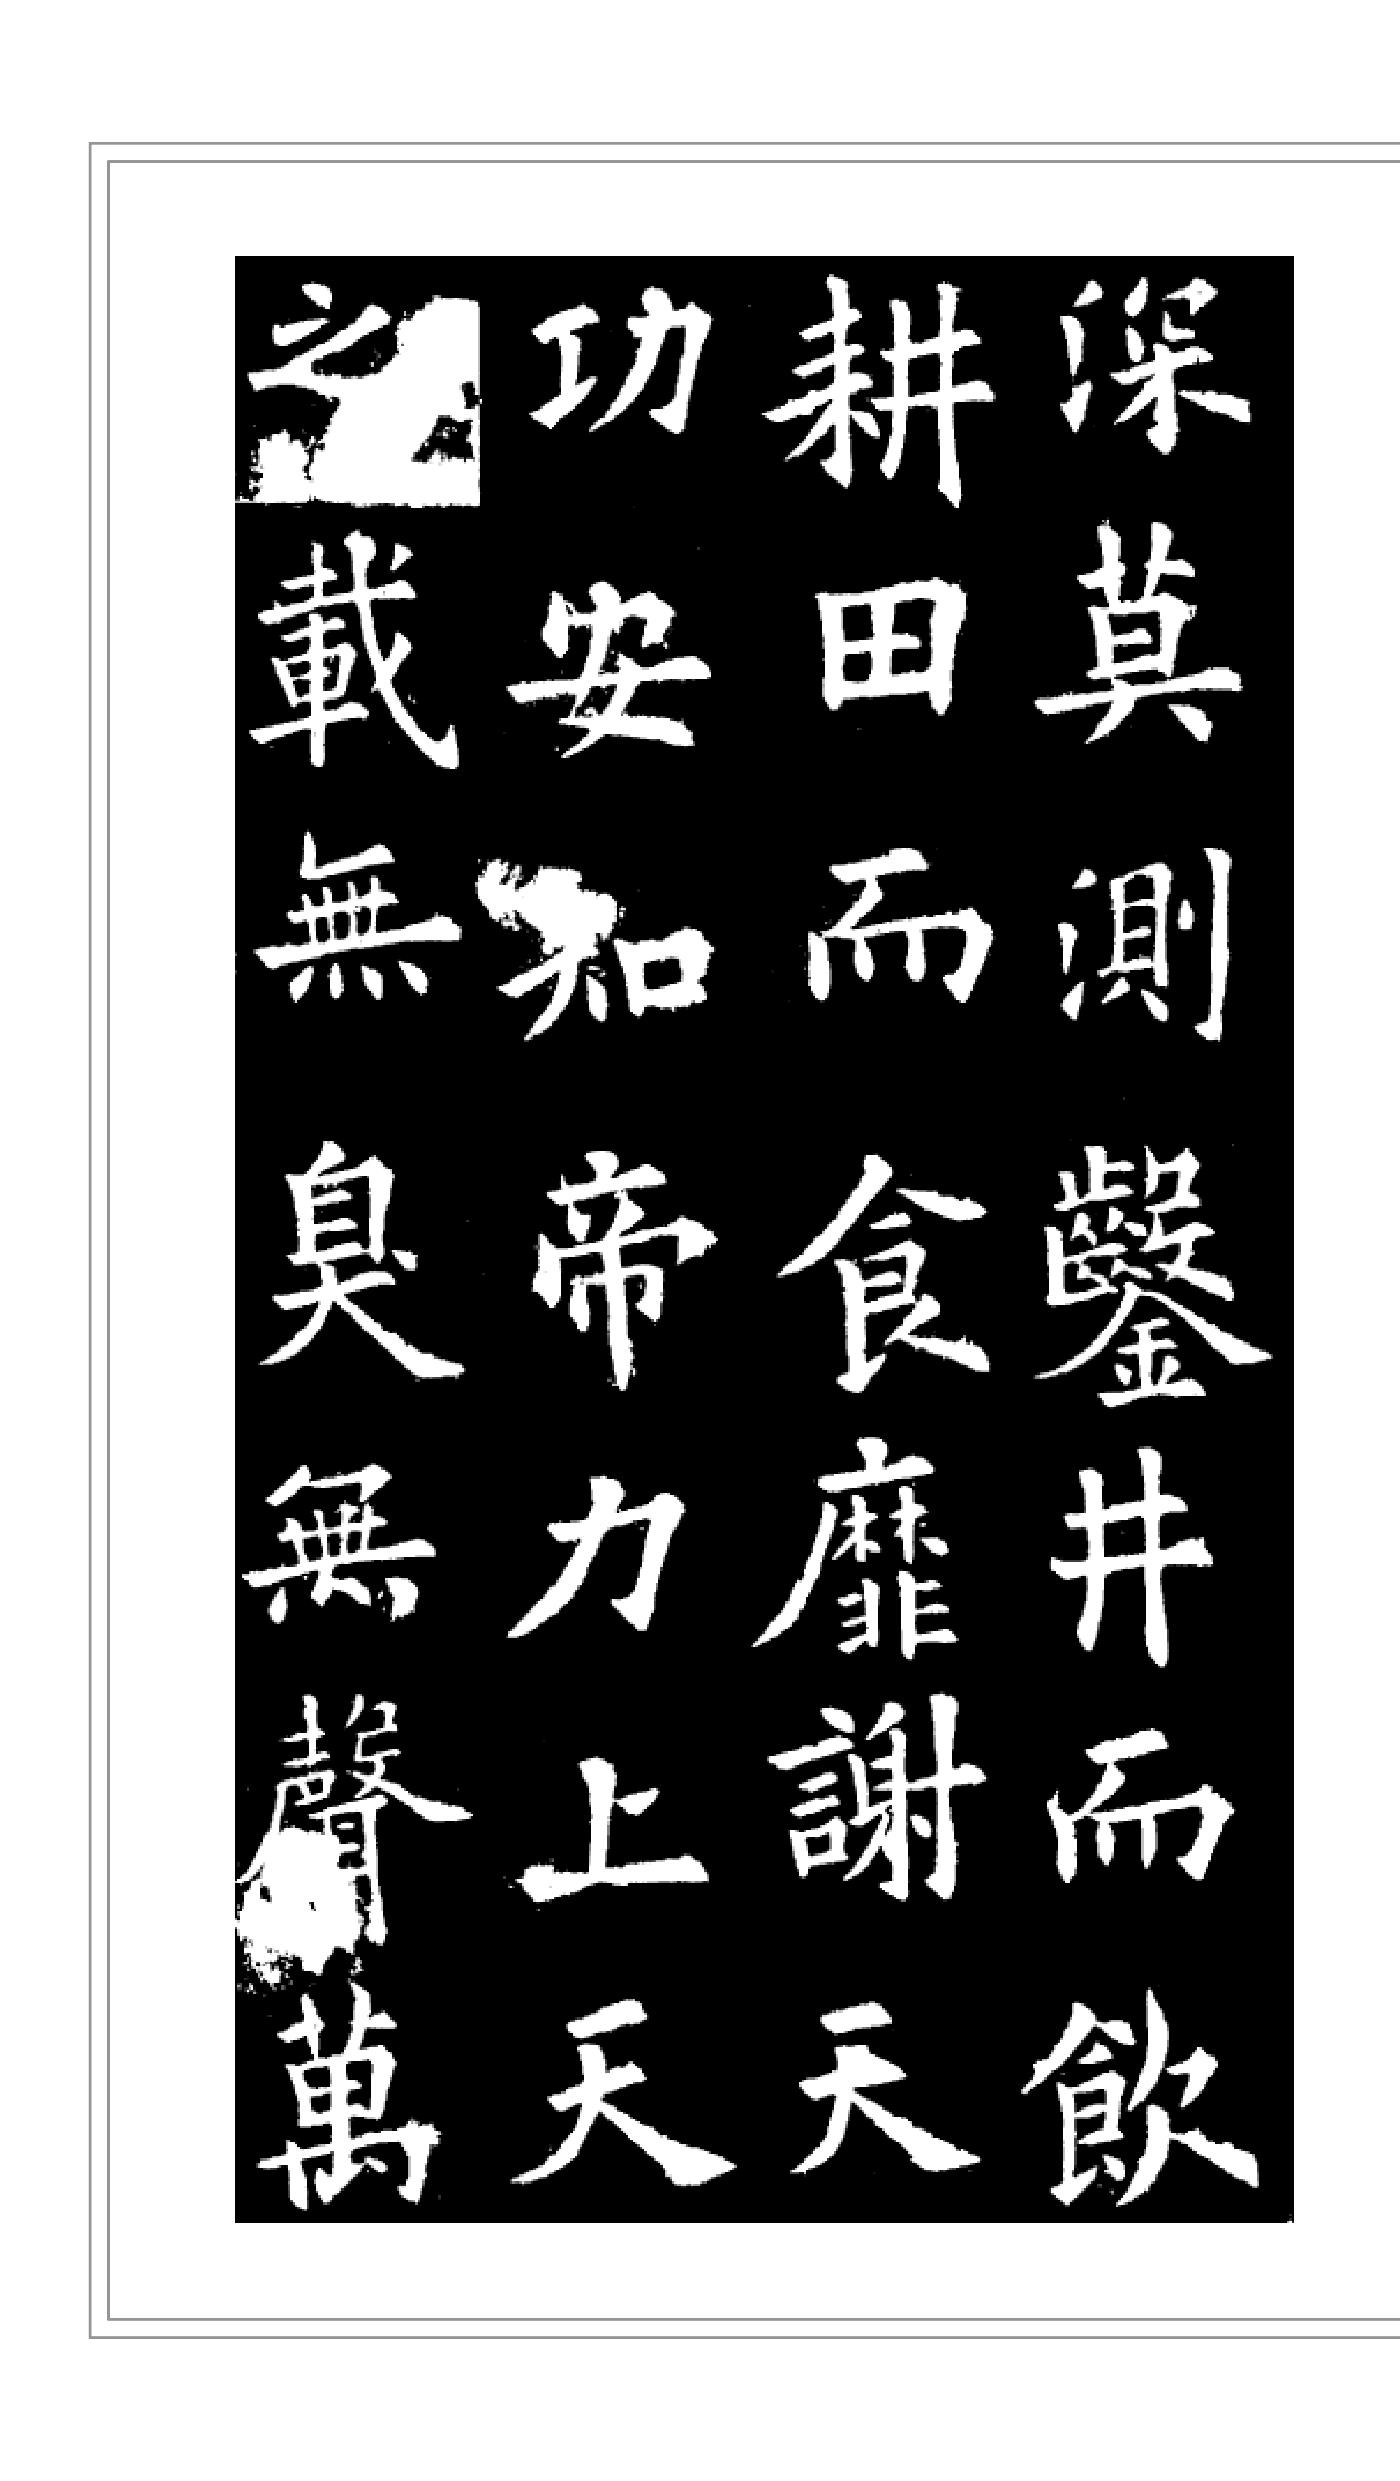 深莫測鑿井而飲
耕田而食靡謝天
功安知帝力上天
之載無臭無聲萬